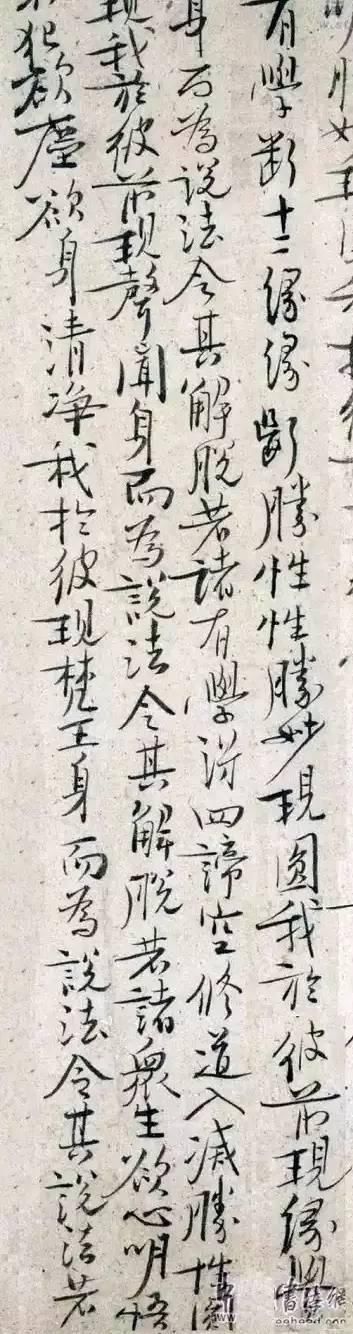 明勝妙現
有學斷十二緣緣斷勝性性勝妙現圓我於彼前現緣覺
身而為說法令其解脫若諸有學得四諦空修道入滅勝性
現我於彼前現聲聞身而為說法令其解脫若諸眾生欲心明悟
犯欲塵欲身清淨我於彼現梵王身而為說法令其說法若